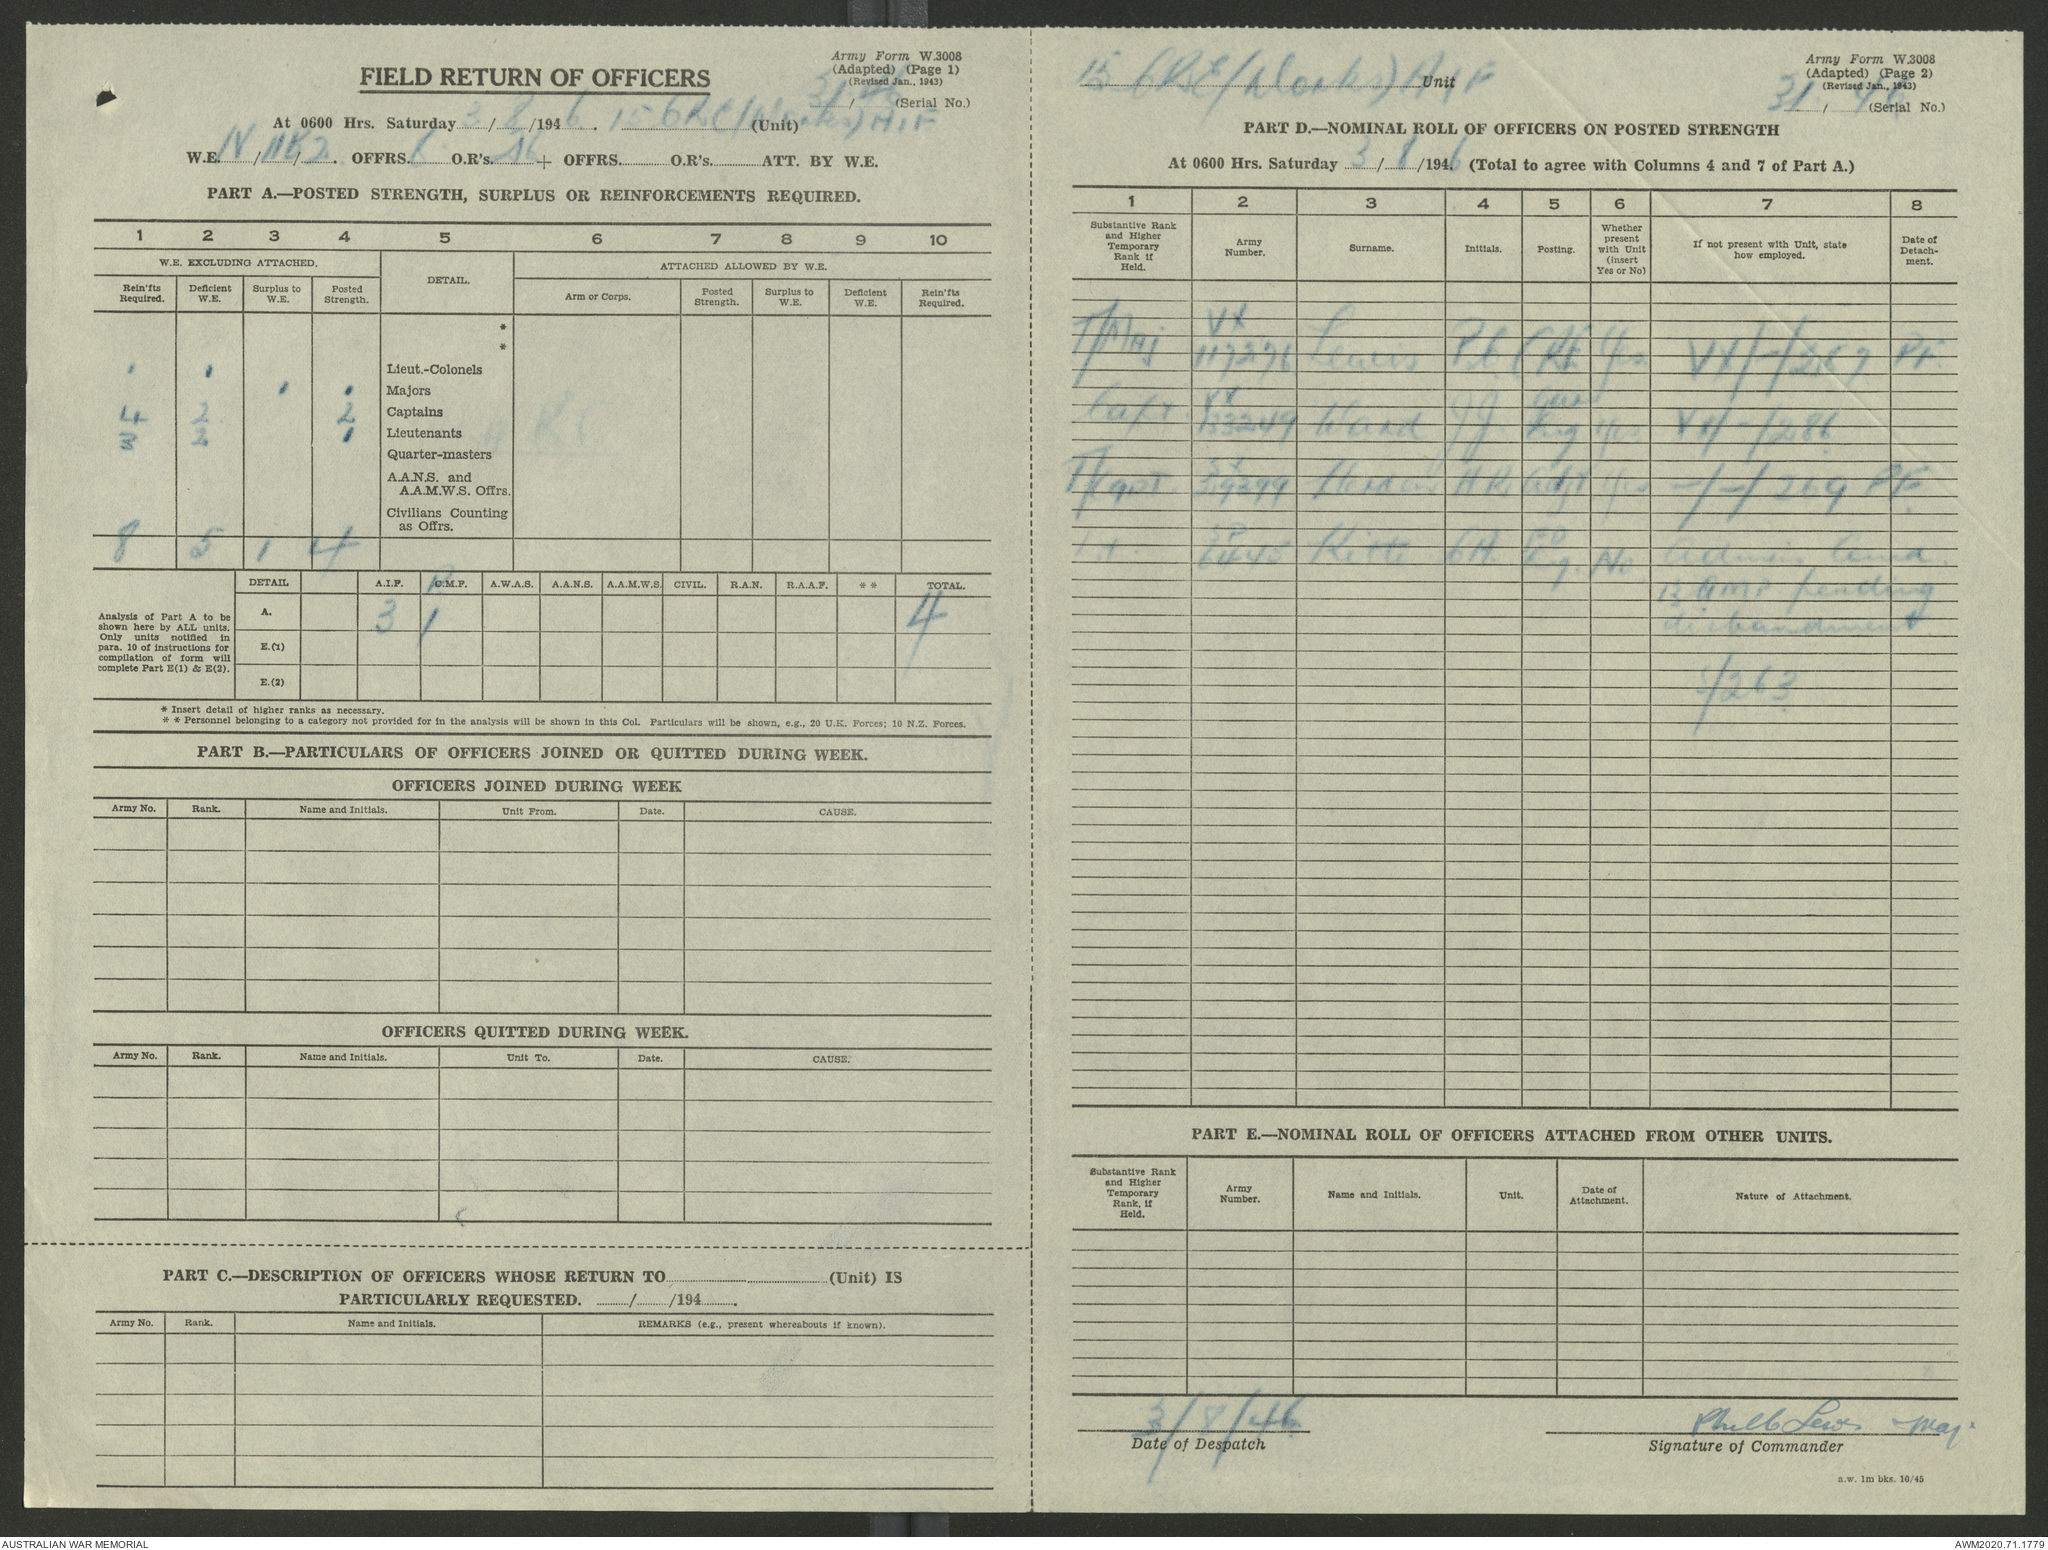 Army Form W.3008
(Adapted) (Page 1)
(Revised Jan., 1943)
31/46 (Serial No.)
FIELD RETURN OF OFFICERS
At 0600 Hrs. Saturday 3/8/1946. 15 CRE (Works) AIF (Unit)
W.E. / / . OFFRS. O.R's. + OFFRS. O.R's. ATT. BY W.E.
PART A.—POSTED STRENGTH, SURPLUS OR REINFORCEMENTS REQUIRED.
1 2 3 4 5 6 7 8 9 10
W.E. EXCLUDING ATTACHED. DETAIL. ATTACHED ALLOWED BY W.E.
Rein'fts Required. Deficient W.E. Surplus to W.E. Posted Strength. Arm or Corps. Posted Strength. Surplus to W.E. Deficient W.E. Rein'fts Required.
*
*
1 1 Lieut.-Colonels
1 1 Majors
4 2 2 Captains
3 2 1 Lieutenants
Quarter-masters
A.A.N.S. and
A.A.M.W.S. Offrs.
Civilians Counting
as Offrs.
8 5 1 4
DETAIL A.I.F. C.M.F. A.W.A.S. A.A.N.S. A.A.M.W.S. CIVIL. R.A.N. R.A.A.F. * * TOTAL.
Analysis of Part A to be
shown here by ALL units.
Only units notified in
para. 10 of instructions for
compilation of form will
complete Part E(1) & E(2).
A. 3 1 4
E.(1)
E.(2)
* Insert detail of higher ranks as necessary.
* * Personnel belonging to a category not provided for in the analysis will be shown in this Col. Particulars will be shown, e.g., 20 U.K. Forces; 10 N.Z. Forces.
PART B.—PARTICULARS OF OFFICERS JOINED OR QUITTED DURING WEEK.
OFFICERS JOINED DURING WEEK
Army No. Rank. Name and Initials. Unit From. Date. CAUSE.
OFFICERS QUITTED DURING WEEK.
Army No. Rank. Name and Initials. Unit To. Date. CAUSE.
PART C.—DESCRIPTION OF OFFICERS WHOSE RETURN TO (Unit) IS
PARTICULARLY REQUESTED. / /194 .
Army No. Rank. Name and Initials. REMARKS (e.g., present whereabouts if known).
15 CRE (Works) AIF Unit
Army Form W.3008
(Adapted) (Page 2)
(Revised Jan., 1943)
31/46 (Serial No.)
PART D.—NOMINAL ROLL OF OFFICERS ON POSTED STRENGTH
At 0600 Hrs. Saturday 3/8/1946 (Total to agree with Columns 4 and 7 of Part A.)
1 2 3 4 5 6 7 8
Substantive Rank and Higher Temporary Rank if Held. Army Number. Surname. Initials. Posting. Whether present with Unit (Insert Yes or No) If not present with Unit, state how employed. Date of Detachment.
T/Maj VX 117276 Lewis P.C. CRE Yes VX/-/267 PF.
Capt. VX 133249 Ward J.J. Yes VX/-/286
T/Capt. SX H.R. Adjt Yes -/-/269 PF.
Lt. Kitto No Admin Comd
13 AMP pending
disbandment
/263
PART E.—NOMINAL ROLL OF OFFICERS ATTACHED FROM OTHER UNITS.
Substantive Rank and Higher Temporary Rank, if Held. Army Number. Name and Initials. Unit. Date of Attachment. Nature of Attachment.
3/8/46
Date of Despatch
Lewis Maj.
Signature of Commander
a.w. 1m bks. 10/45
AUSTRALIAN WAR MEMORIAL
AWM2020.71.1779